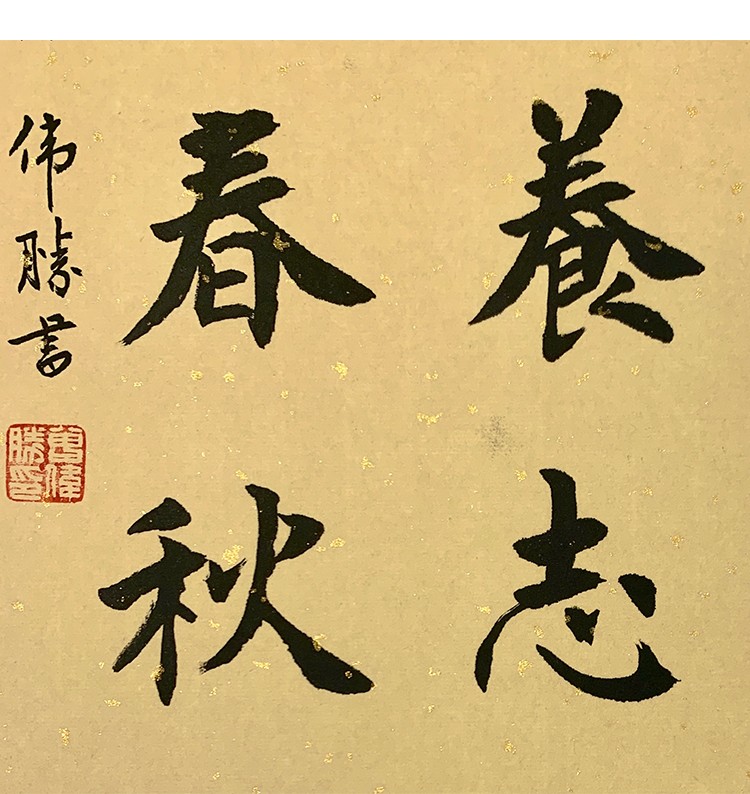 養志
春秋
伟勝書
偉勝印